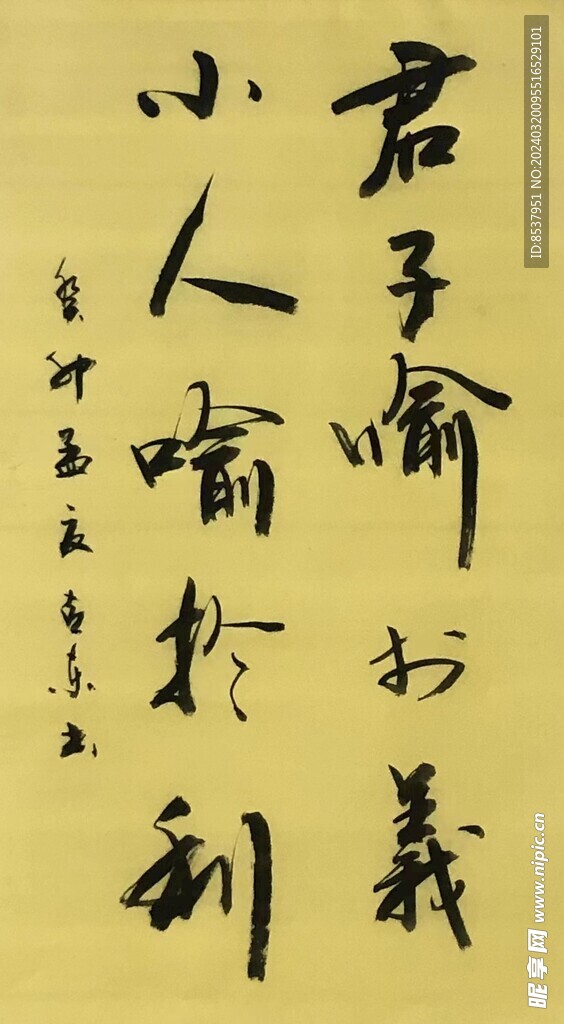 君子喻於義
小人喻於利
癸卯孟夏吉东书
ID:8537951 NO:20240320095516529101
昵享网 www.nipic.cn